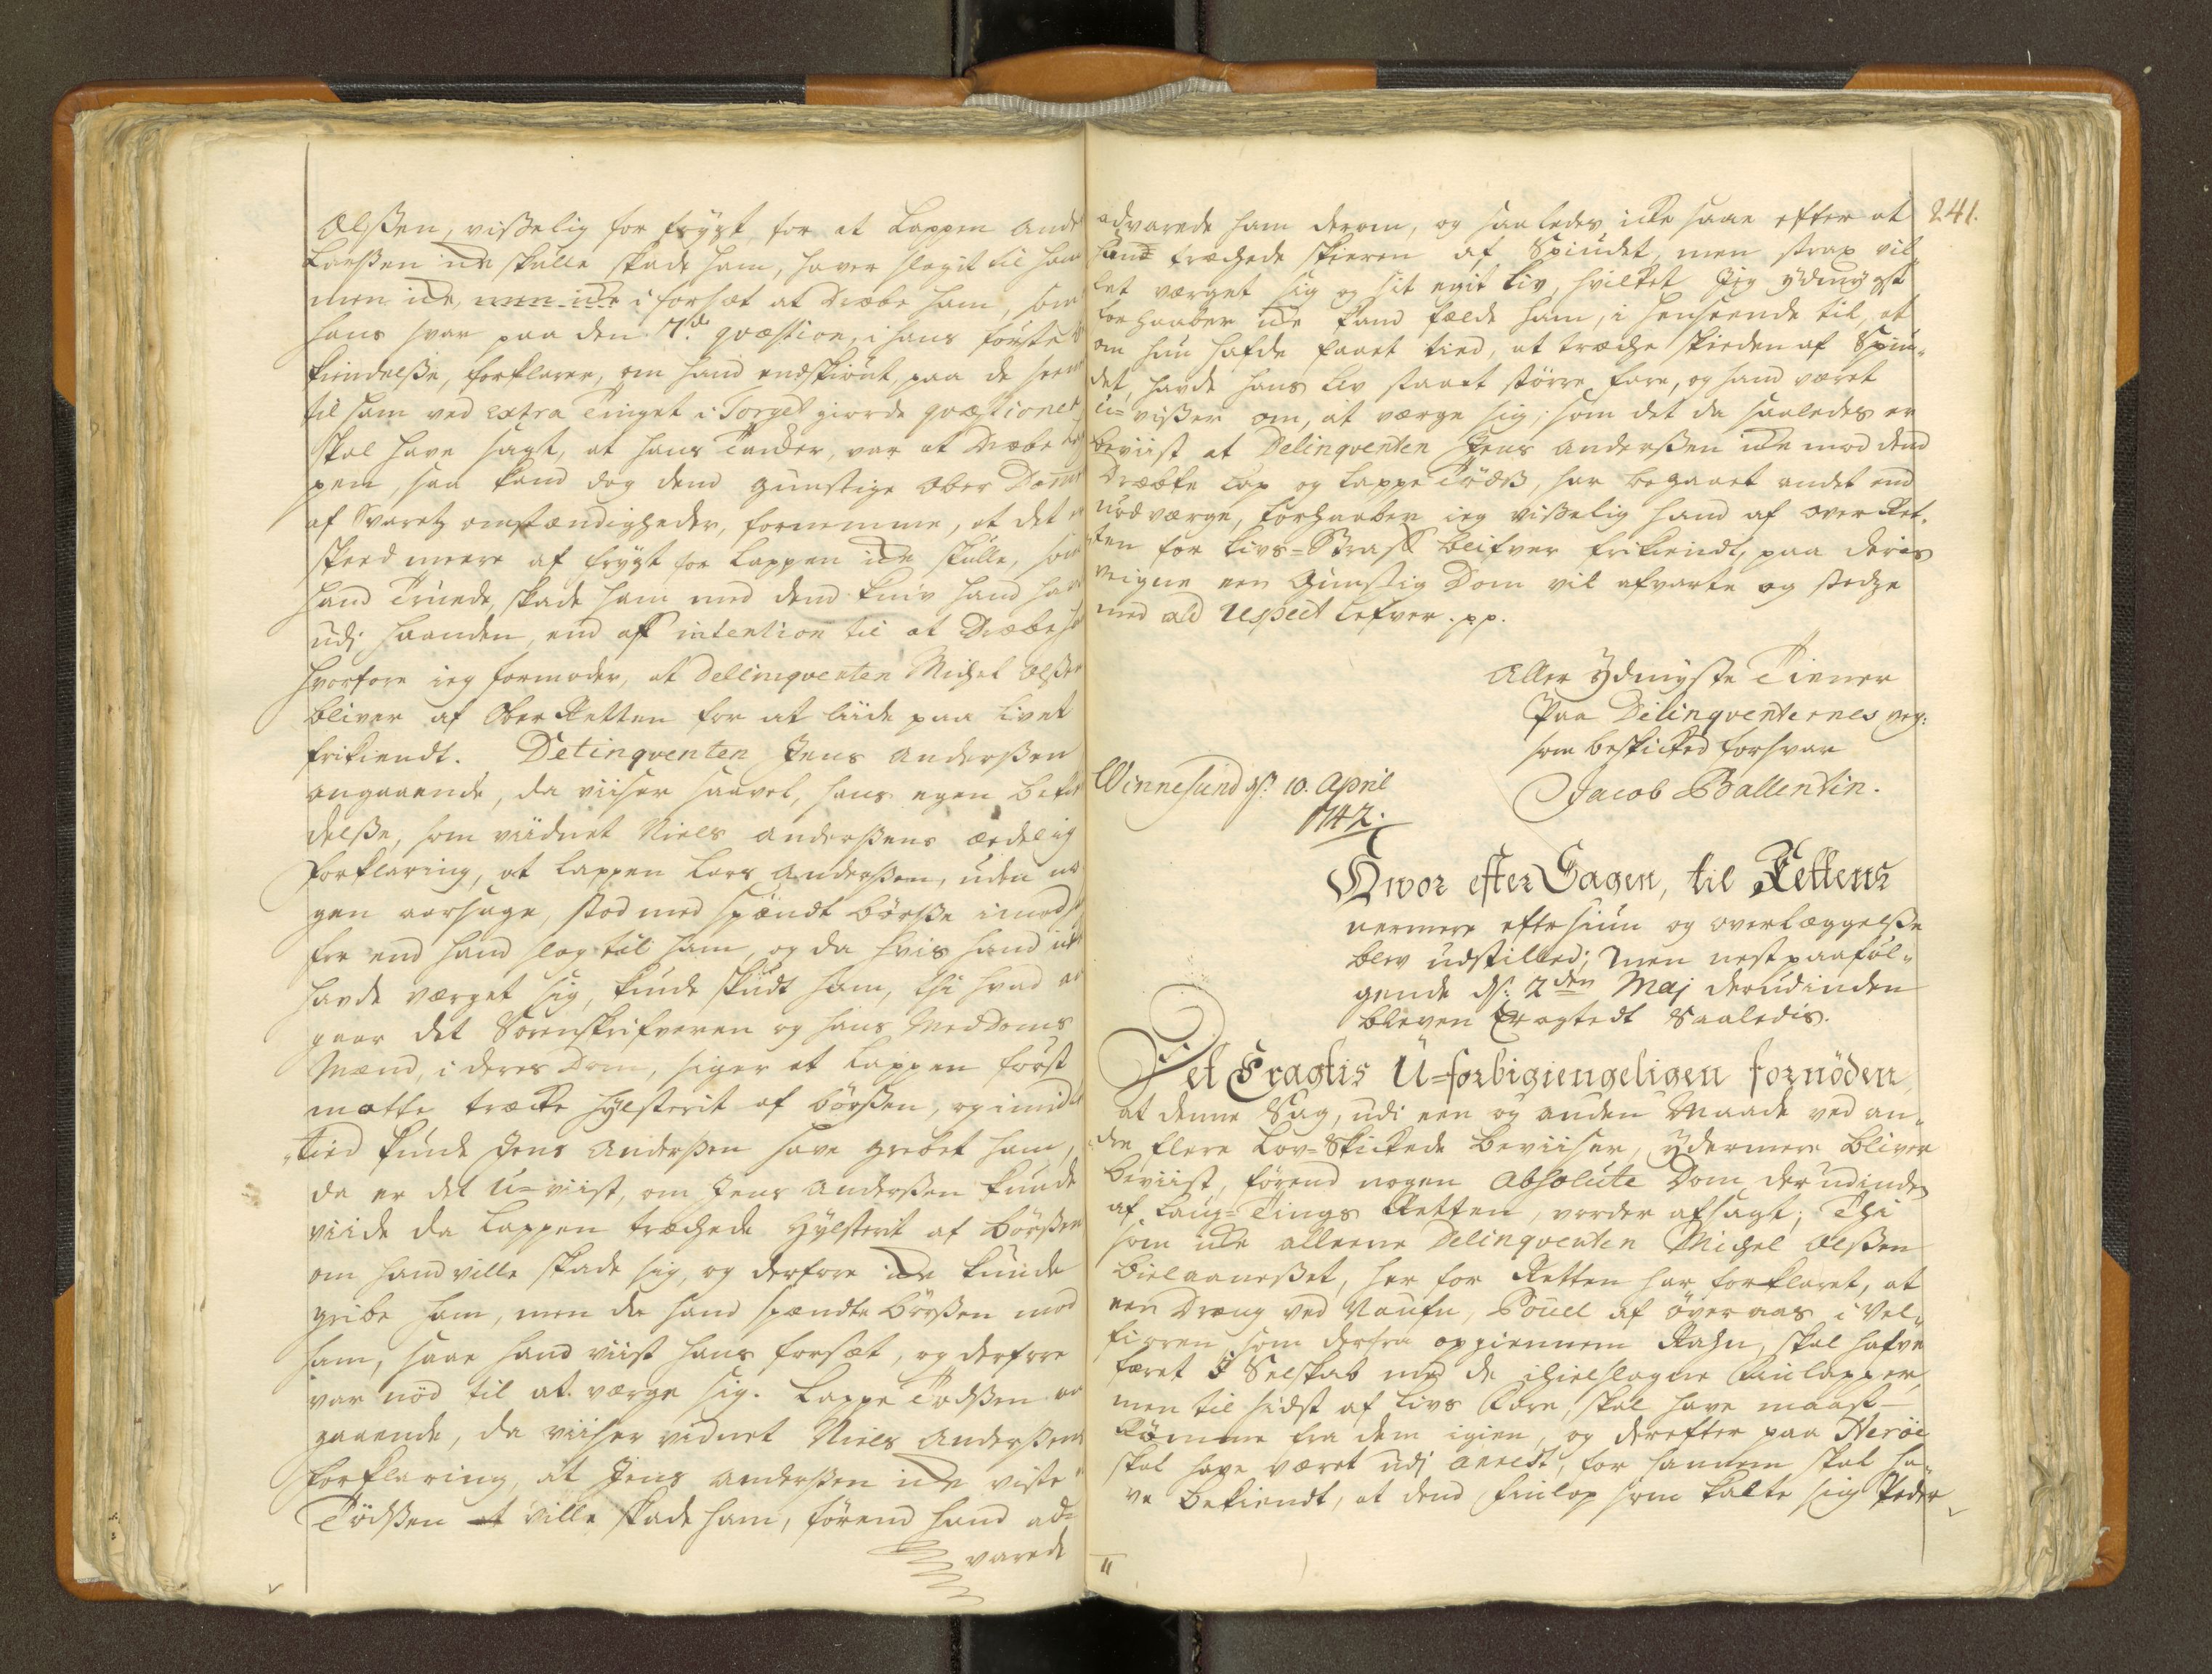 Olßen, visselig for frygt for at Lappen Ande
Larßen icke skulle skade ham, haver slagit til ham
men icke, men icke i forsæt at Dræbe ham, som
hans svar paa den 7de qvæstion, i hans første be
kiendelße, forklarer, om hand endskiønt, paa de
til ham ved extra Tinget i Torget giorde qvæstioner
skal have sagt, at hans Tancker, var at Dræbe Lap
pen, saa kand dog dend gunstige Ober Domer
af Svarets omstændigheder, fornemme, at det er
skeed meere af frygt for Lappen icke skulle, som
hand Truede, skade ham med dend kniv hand hav
udj haanden, end aff intention til at Dræbe ham
hvorfore ieg formoder, at Delinqventen Michel Olßen
bliver af Ober Retten for at liide paa livet
frikiendt. Delinqventen Jens Anderßen
angaaende, da viiser saavel, hans egen bekien
delße, som viidnet Niels Anderßens eedelig
forklaring, at Lappen Lars Anderßen, uden no
gen aarsage, stod med spændt børsse imod
før end hand slog til ham, og da hvis hand icke
havde værget sig, kunde skudt ham, thi hvad an
gaar det Sorenskrifveren og hans Meddoms
Mænd, i deres Dom, siger at Lappen først
motte træcke hylsterit af børßen, og imidler
tied kunde Jens Anderßen have grebet ham,
da er det u-viist, om Jens Anderßen kunde
viide da Lappen træchede Hylsterit af børßen
om hand ville skade sig, og derfore icke kunde
gribe ham, men da hand spændte børßen mod
ham, saae hand viist hans forsæt, og derfore
var nød til at værge sig. Lappe Tødßen an
gaaende, da viiser vidnet Niels Anderßens
forklaring, at Jens Anderßen icke viste
Tødßen at ville skade ham, førend hand ad-
varede
241.
advarede ham derom, og saaledes icke saae efter at
hand træchede skieeen af Spiudet, men strax vil
let værget sig og sit egit liv, hvilket Jeg ydmygst
forhaaber icke kand fælde ham, i henseende til, at
om hun hafde faaet tied, at træche skieden af Spiu-
det, havde hans Liv staaet større fare, og hand været
u-visser om, at værge sig; som det da saaledes er
beviist at Delinqventen Jens Anderßen icke mod dend
Dræbte Lap og Lappe Tødß, har begaaet andet end
nødværge, forhaaber ieg visselig hand af over Ret-
ten for Livs-Straff blifver frikiendt, paa deris
veigne een Gunstig Dom vil afvarte og stedze
med ald respect lefver. pp.
Aller Ydmygste Tienner
Paa Delinqventernes veg:
som beskicked forsvar
Jacob Ballentin.
Winnesund ds: 10. April
1742.
Hvor efter Sagen, til Rettens
nermere eftersiun og overlæggelße
blev udstilled; Men nestpaaføl-
gende ds: 2den Maj derudinden
bleven Eragtedt Saaledis.
Det Eragtis U-forbigiengeligen fornöden
at denne Sag, udi een og anden Maade ved an-
dre flere Lov-Skickede beviiser, ydermere bliver
beviist, førend nogen Absolute Dom derudinden
af Laug-Tings Retten, vorder afsagt; Thi
som icke alleene Delinqventen Michel Olßen
Bielaaneßet, her for Retten har forklaret, at
een Dræng ved Naufn, Pouel af Øveraas i Vel-
fioren som derfra oppiennem Ræhn, skal hafve
færet i Selskab med de ihielslagne Finlapper,
men til sidst af Livs Fare, skal have maast-
Rømme fra dem igien, og derefter paa Herøe
skal have været udj arrest, for hannem skal ha-
ve bekiendt, at dend Finlap som kalte sig Peder